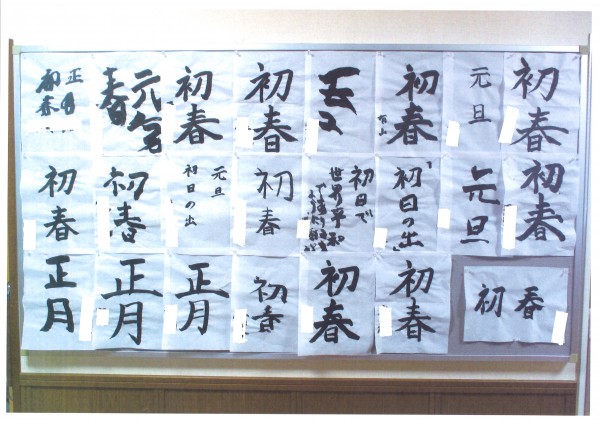 初春
元旦
初春
初春
初春
元気
春
正月
初春
初春
元旦
「初日の出」
初日で
世界平和
初春
元旦
初日の出
初春
初春
初春
初春
初春
初春
正月
正月
正月